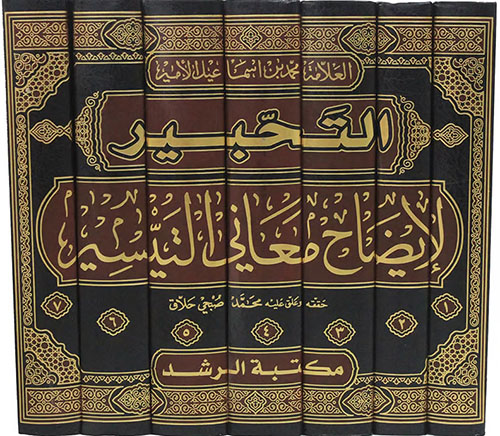 العلامة محمد بن اسماعيل الأمير
التحبير
لإيضاح معاني التيسير
حققه وعلق عليه محمد صبحي حلاق
١ ٢ ٣ ٤ ٥ ٦ ٧
مكتبة الرشد